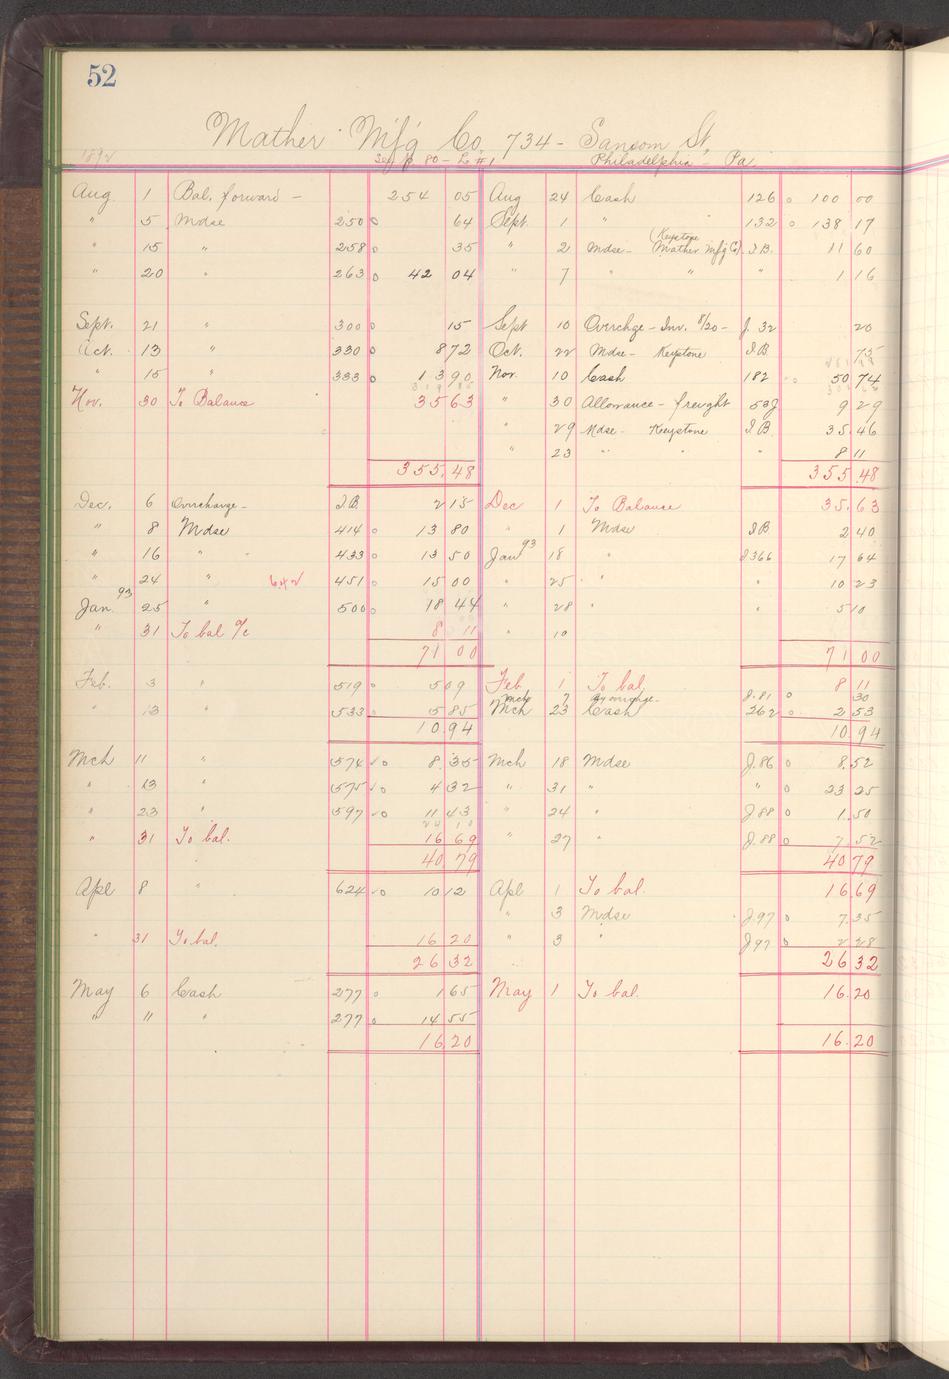 52
Mather Mfg Co. 734 - Sansom St,
1892 See p 80 - L #1 Philadelphia - Pa.
Aug 1 Bal, forward - 254 05 Aug 24 Cash 126 100 00
" 5 Mdse 250 64 Sept. 1 " " 132 138 17
" 15 " 258 35 " 2 Mdse - (Keystone Mather Mfg Co). I.B. 11 60
" 20 " 263 42 04 " 7 " " " 1 16
Sept. 21 " 300 15 Sept 10 Overchge - Inv. 8/20 - J. 32 20
Oct. 13 " 330 8 72 Oct. 22 Mdse - Keystone I.B. 75
" 15 " 333 13 90 Nov. 10 Cash 182 50 74
Nov. 30 To Balance 35 63 " 30 Allowance - freight 53J 9 29
" 29 Mdse - Keystone I.B. 35.46
" 23 " " " 8 11
355.48 355.48
Dec. 6 Overcharge - I.B. 2 15 Dec 1 To Balance 35.63
" 8 Mdse 414 13 80 " 1 Mdse I.B 2 40
" 16 " 433 13 50 Jan 93 18 " I366 17 64
" 24 " 642 451 15 00 " 25 " " 10 23
Jan. 93 25 " 500 18 44 " 28 " " 5 10
" 31 To bal % 8 11 " 10
71 00 71 00
Feb. 3 " 519 5 09 Feb 1 To bal 8 11
Mch 7 By overchge - J.81 30
" 13 " 533 5 85 Mch 23 Cash 262 2 53
10.94 10.94
Mch 11 " 574 8.35 Mch 18 Mdse J.86 8.52
" 13 " 575 4 32 " 31 " " 23 25
" 23 " 597 11 43 " 24 " J 88 1.50
" 31 To bal. 16 69 " 27 " J.88 7.52
40 79 40 79
Apl 8 " 624 10 12 Apl 1 To bal. 16.69
" 3 Mdse J.97 7.35
" 31 To bal. 16 20 " 3 " J97 2 28
26 32 26 32
May 6 Cash 277 1 65 May 1 To bal. 16.20
" " " 277 14 55
16 20 16.20